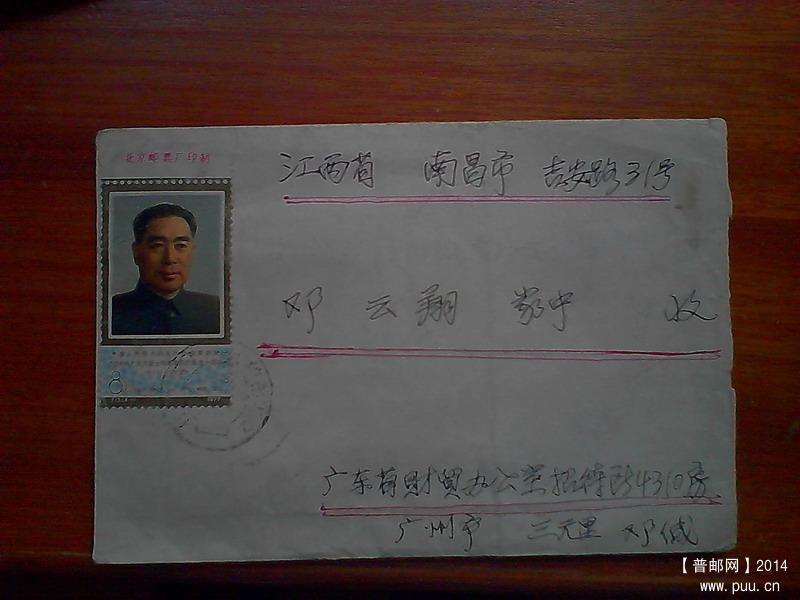 北京邮票厂印制
江西省 南昌市 吉安路31号
邓 云翔 家中 收
8分
1977
广东省财贸办公室招待所4310房
广州市 三元里 邓
【普邮网】2014
www.puu.cn